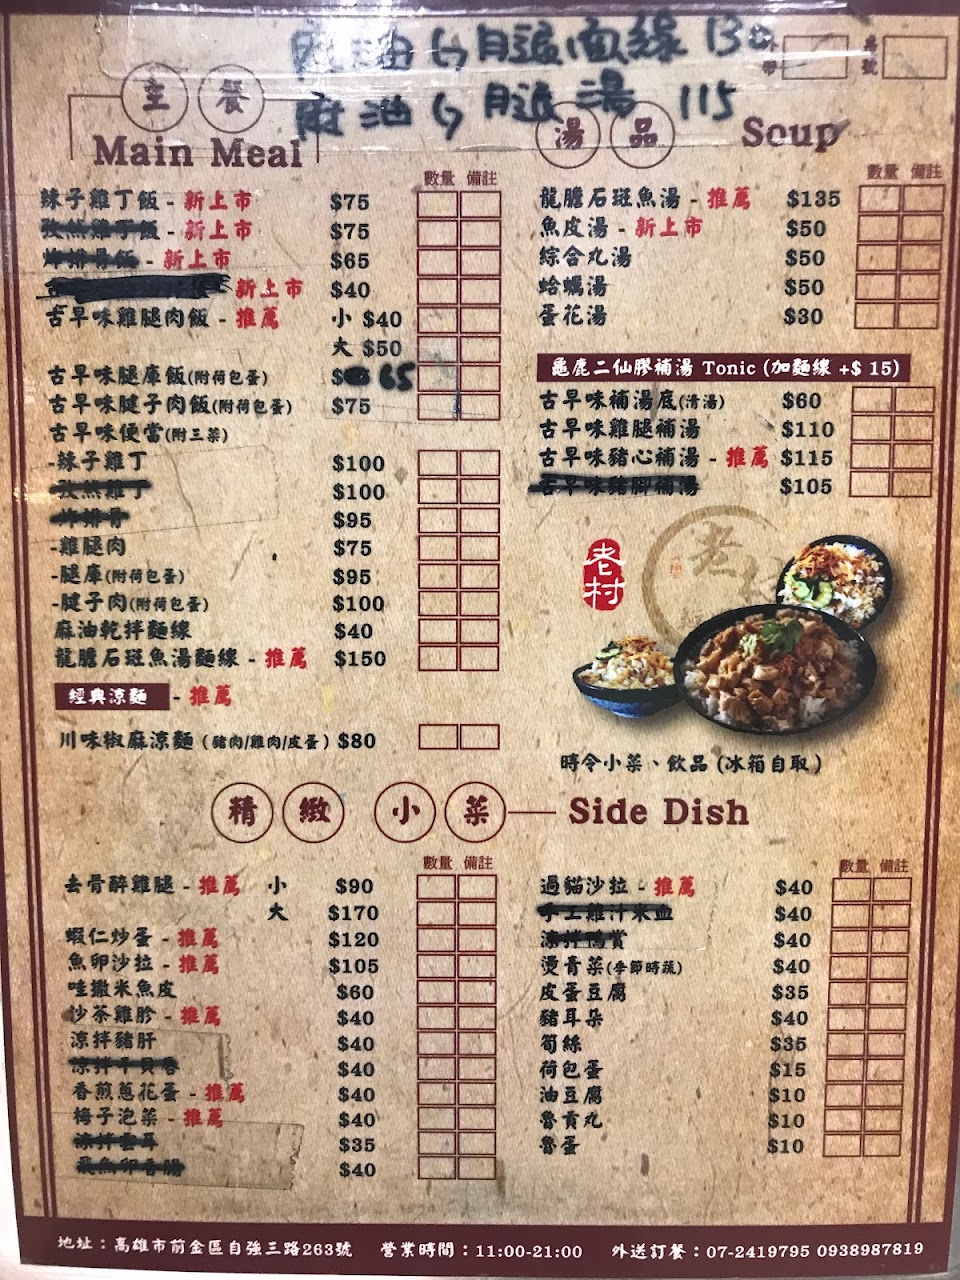 麻油ㄣ腿面線 130
麻油ㄣ腿湯 115
外帶
桌號
主餐
Main Meal
數量 備註
辣子雞丁飯 - 新上市 $75
孜然雞丁飯 - 新上市 $75
炸排骨飯 - 新上市 $65
新上市 $40
古早味雞腿肉飯 - 推薦 小 $40
大 $50
古早味腿庫飯(附荷包蛋) $ 65
古早味腱子肉飯(附荷包蛋) $75
古早味便當(附三菜)
-辣子雞丁 $100
-孜然雞丁 $100
-炸排骨 $95
-雞腿肉 $75
-腿庫(附荷包蛋) $95
-腱子肉(附荷包蛋) $100
麻油乾拌麵線 $40
龍膽石斑魚湯麵線 - 推薦 $150
經典涼麵 - 推薦
川味椒麻涼麵 (豬肉/雞肉/皮蛋) $80
湯品
Soup
數量 備註
龍膽石斑魚湯 - 推薦 $135
魚皮湯 - 新上市 $50
綜合丸湯 $50
蛤蠣湯 $50
蛋花湯 $30
龜鹿二仙膠補湯 Tonic (加麵線 +$ 15)
古早味補湯底(清湯) $60
古早味雞腿補湯 $110
古早味豬心補湯 - 推薦 $115
古早味豬腳補湯 $105
老村
時令小菜、飲品 (冰箱自取)
精緻小菜 Side Dish
數量 備註
去骨醉雞腿 - 推薦 小 $90
大 $170
蝦仁炒蛋 - 推薦 $120
魚卵沙拉 - 推薦 $105
哇撒米魚皮 $60
沙茶雞胗 - 推薦 $40
涼拌豬肝 $40
涼拌干貝唇 $40
香煎蔥花蛋 - 推薦 $40
梅子泡菜 - 推薦 $40
涼拌雲耳 $35
飛魚卵香腸 $40
數量 備註
過貓沙拉 - 推薦 $40
手工雞汁米血 $40
涼拌鴨賞 $40
燙青菜(季節時蔬) $40
皮蛋豆腐 $35
豬耳朵 $40
筍絲 $35
荷包蛋 $15
油豆腐 $10
魯貢丸 $10
魯蛋 $10
地址：高雄市前金區自強三路263號 營業時間：11:00-21:00 外送訂餐：07-2419795 0938987819